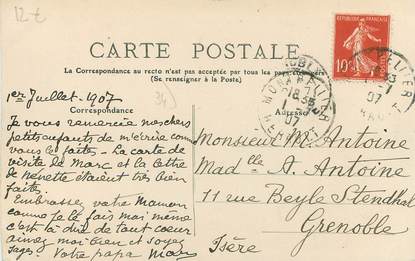 12 €
CARTE POSTALE
La Correspondance au recto n'est pas acceptée par tous les pays étrangers
(Se renseigner à la Poste)
RÉPUBLIQUE FRANÇAISE
10c
MONTPELLIER
18 35
1 - 7
07
HÉRAULT
34
Correspondance
Adresse
1er Juillet - 1907
Je vous remercie mes chers
petits enfants de m'écrire comme
vous le faîtes - La carte de
visite de Marc et la lettre
de nenette étaient très bien
faites
Embrassez votre Maman
comme je le fais moi même
c'est à dire de tout coeur
aimez moi bien et soyez
sages. Votre papa
Monsieur M. Antoine
Madlle A. Antoine
11 rue Beyle Stendhal
Grenoble
Isère